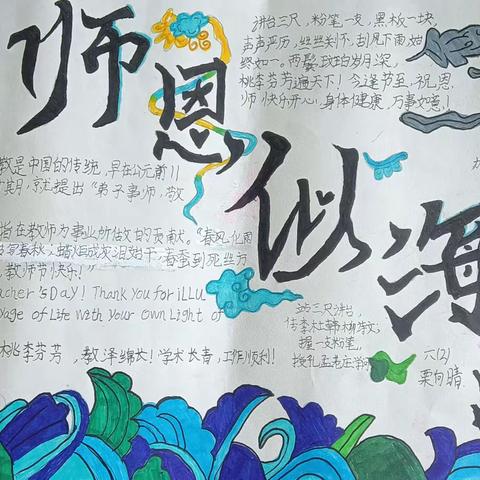 师恩似海
讲台三尺，粉笔一支，黑板一块，
声声严厉，丝丝关怀，刮风下雨，始
终如一。两鬓斑白岁月深，
桃李芬芳遍天下！今逢节至，祝恩
师快乐开心，身体健康，万事如意！
教是中国的传统，早在公元前11
期，就提出“弟子事师，敬
在教师为事业所做的贡献。“春风化雨
春秋，蜡炬成灰泪始干，春蚕到死丝方
教师节快乐！”
acher's DAY! Thank you for iLLU
yage of Life with your own Light of
桃李芬芳，教泽绵长！学术长青，工作顺利！
站三尺讲台，
握一支粉笔，
六(2)
栗向晴